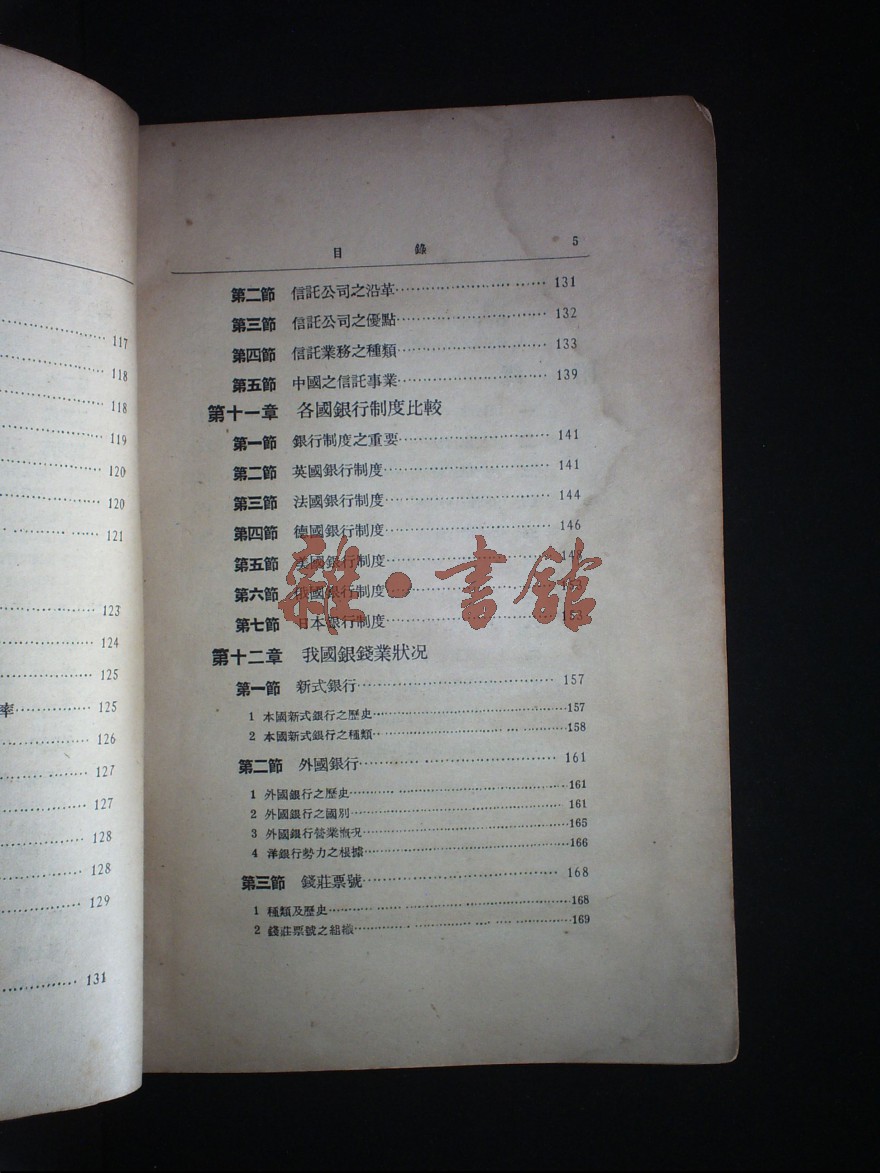 117
118
118
119
120
120
121
123
124
125
率⋯⋯⋯⋯⋯ 125
126
127
127
128
128
129
131
目 錄 5
第二節 信託公司之沿革⋯⋯⋯⋯⋯ 131
第三節 信託公司之優點⋯⋯⋯⋯⋯ 132
第四節 信託業務之種類⋯⋯⋯⋯⋯ 133
第五節 中國之信託事業⋯⋯⋯⋯⋯ 139
第十一章 各國銀行制度比較
第一節 銀行制度之重要⋯⋯⋯⋯⋯ 141
第二節 英國銀行制度⋯⋯⋯⋯⋯ 141
第三節 法國銀行制度⋯⋯⋯⋯⋯ 144
第四節 德國銀行制度⋯⋯⋯⋯⋯ 146
第五節 美國銀行制度⋯⋯⋯⋯⋯ 148
第六節 俄國銀行制度⋯⋯⋯⋯⋯
第七節 日本銀行制度⋯⋯⋯⋯⋯ 153
雜·書館
第十二章 我國銀錢業狀况
第一節 新式銀行⋯⋯⋯⋯⋯ 157
1 本國新式銀行之歷史⋯⋯⋯⋯⋯157
2 本國新式銀行之種類⋯⋯⋯⋯⋯158
第二節 外國銀行⋯⋯⋯⋯⋯ 161
1 外國銀行之歷史⋯⋯⋯⋯⋯161
2 外國銀行之國別⋯⋯⋯⋯⋯161
3 外國銀行營業概况⋯⋯⋯⋯⋯165
4 洋銀行勢力之根據⋯⋯⋯⋯⋯166
第三節 錢莊票號⋯⋯⋯⋯⋯ 168
1 種類及歷史⋯⋯⋯⋯⋯168
2 錢莊票號之組織⋯⋯⋯⋯⋯169